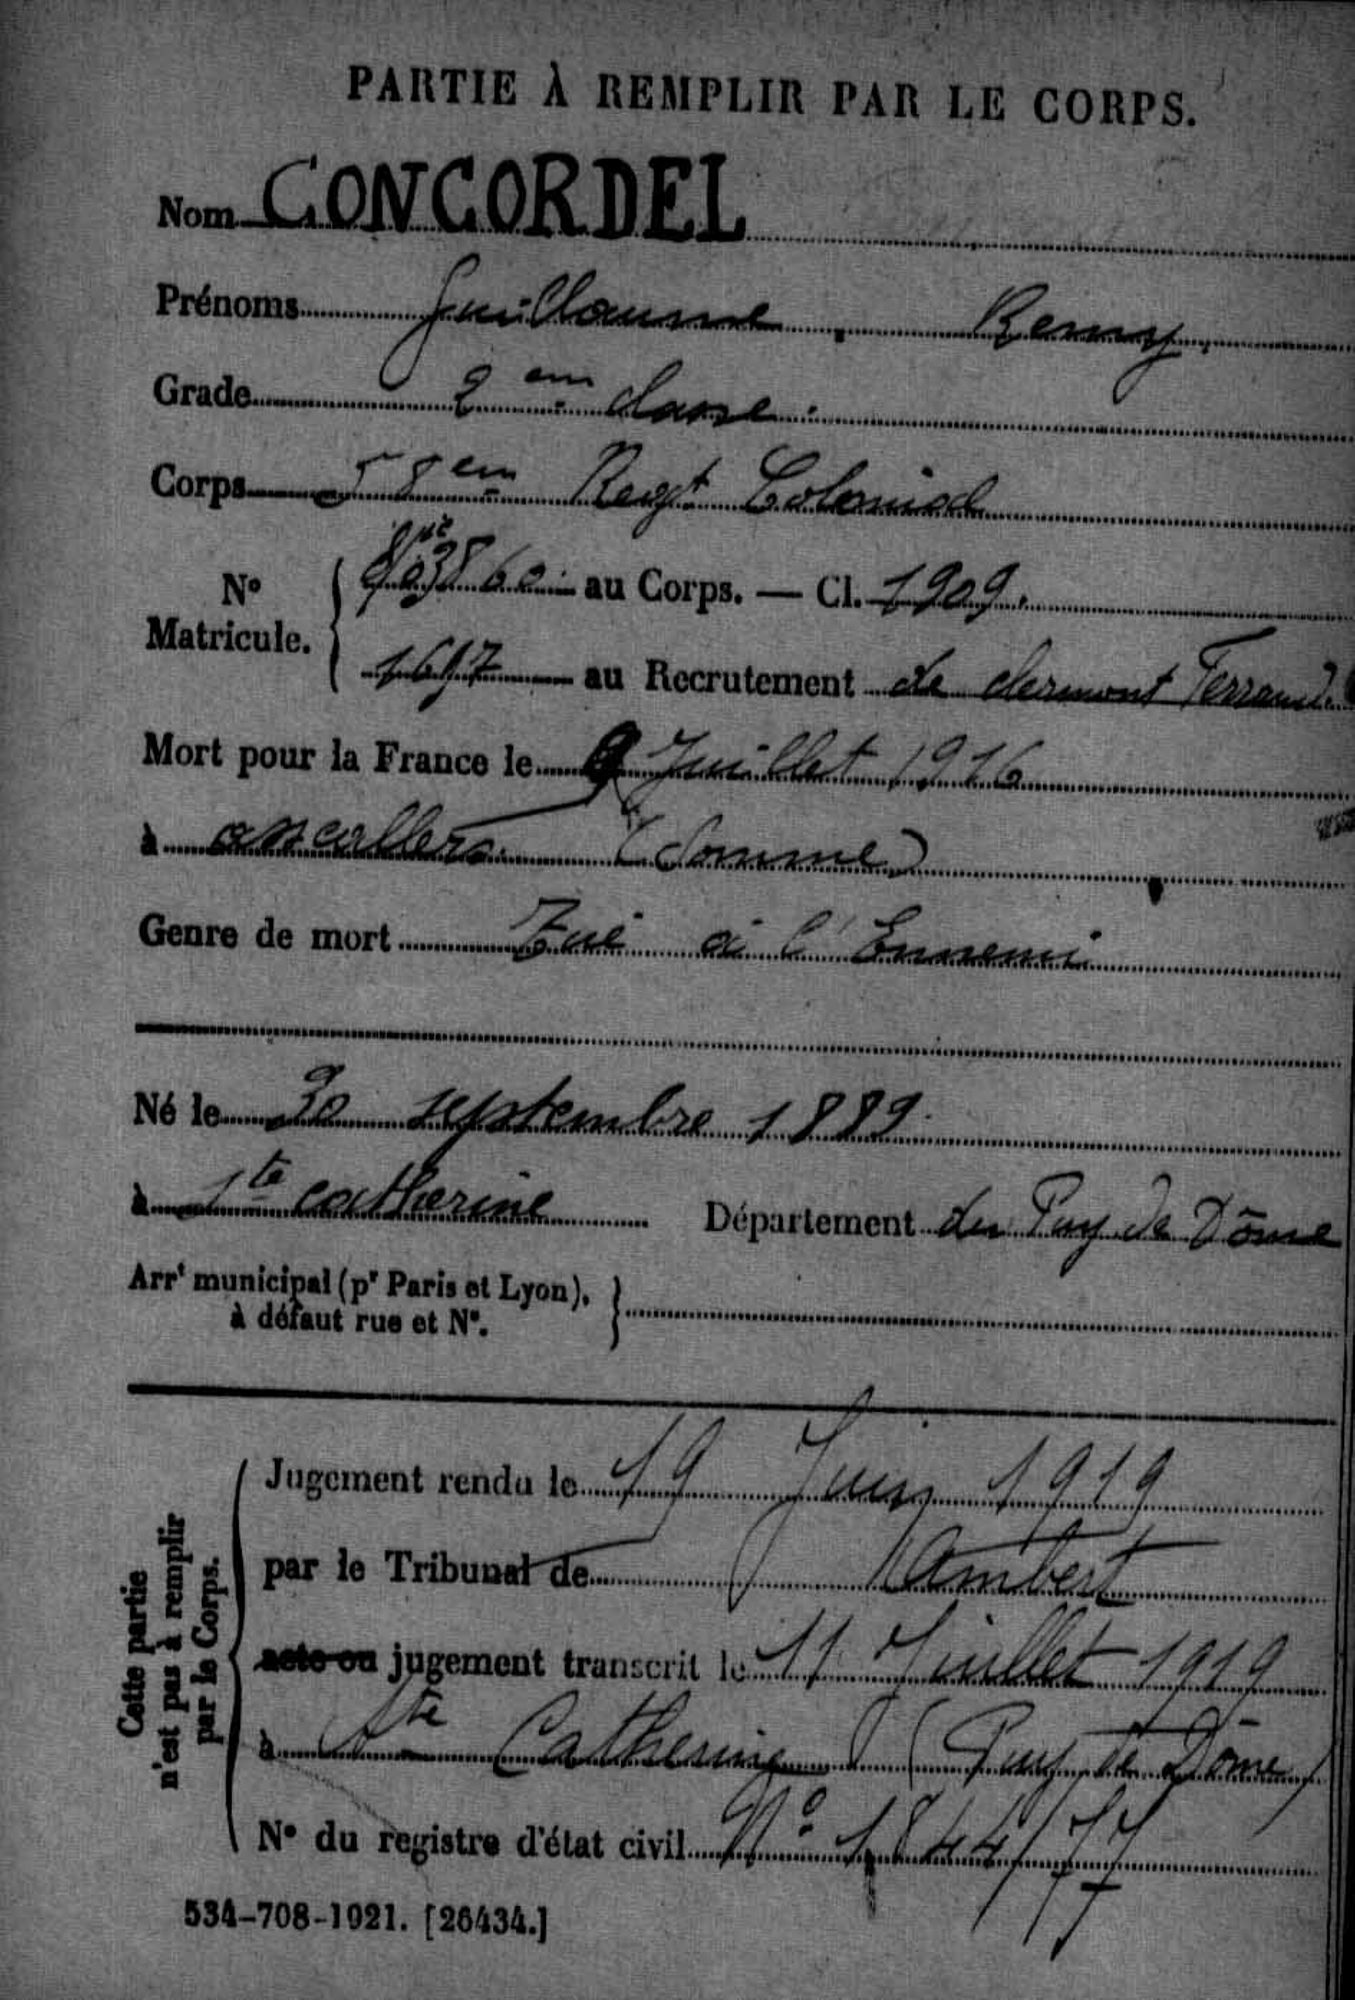 PARTIE À REMPLIR PAR LE CORPS.
Nom CONCORDEL
Prénoms Guillaume. Remy.
Grade 2em classe.
Corps 58em Regt Colonial
No Matricule. 60 au Corps. — Cl. 1909.
1697 au Recrutement de clermont Ferrand.
Mort pour la France le 9 Juillet 1916
à (Somme)
Genre de mort Tué à l'Ennemi
Né le 30 septembre 1889.
à Ste catherine Département du Puy de Dôme
Arrt municipal (pr Paris et Lyon),
à défaut rue et No.
Cette partie
n'est pas à remplir
par le Corps.
Jugement rendu le 19 Juin 1919
par le Tribunal de Ambert
acte ou jugement transcrit le 11 Juillet 1919
à Ste Catherine (Puy de Dôme)
No du registre d'état civil No 1844/77
534-708-1921. [26434.]